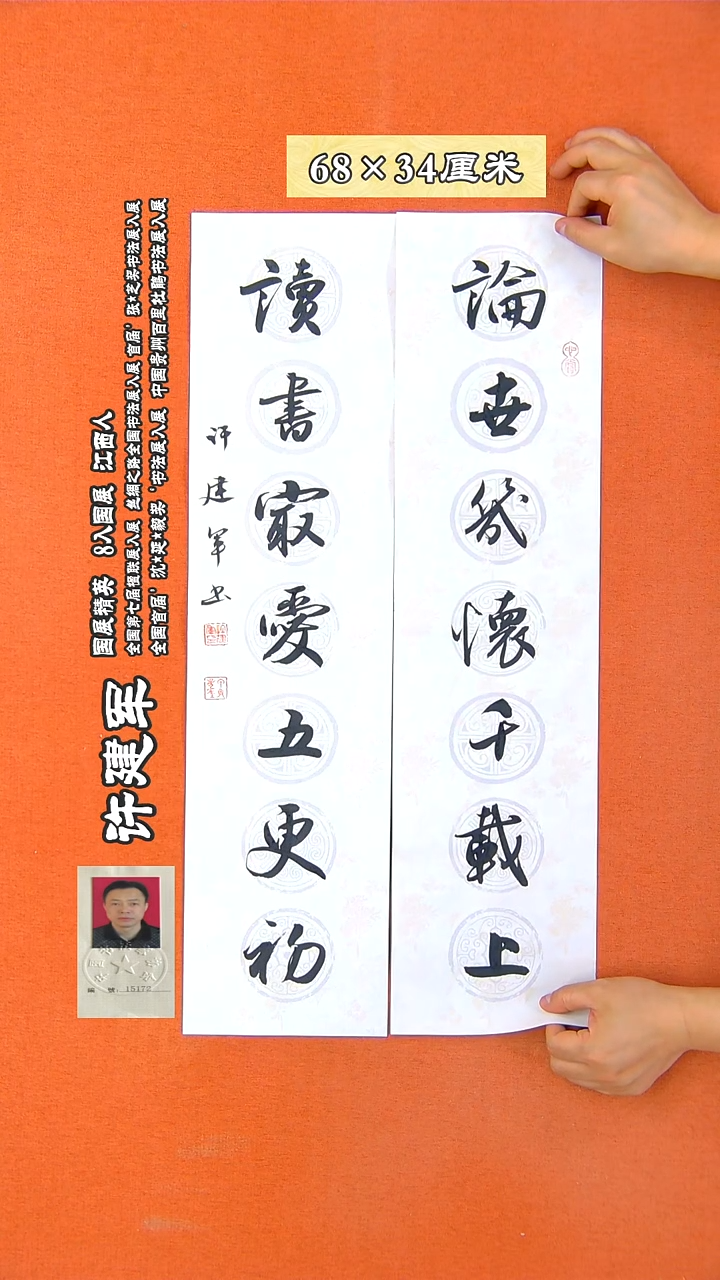 68×34厘米
論世幾懷千載上
讀書㝡愛五更初
许建軍书
许建军
国展精英 8入国展 江西人
全国第七届楹联展入展 丝绸之路全国书法展入展首届'张*芝奖书法展入展
全国首届'沈*延*毅奖'书法展入展 中国贵州百里杜鹃书法展入展
15172